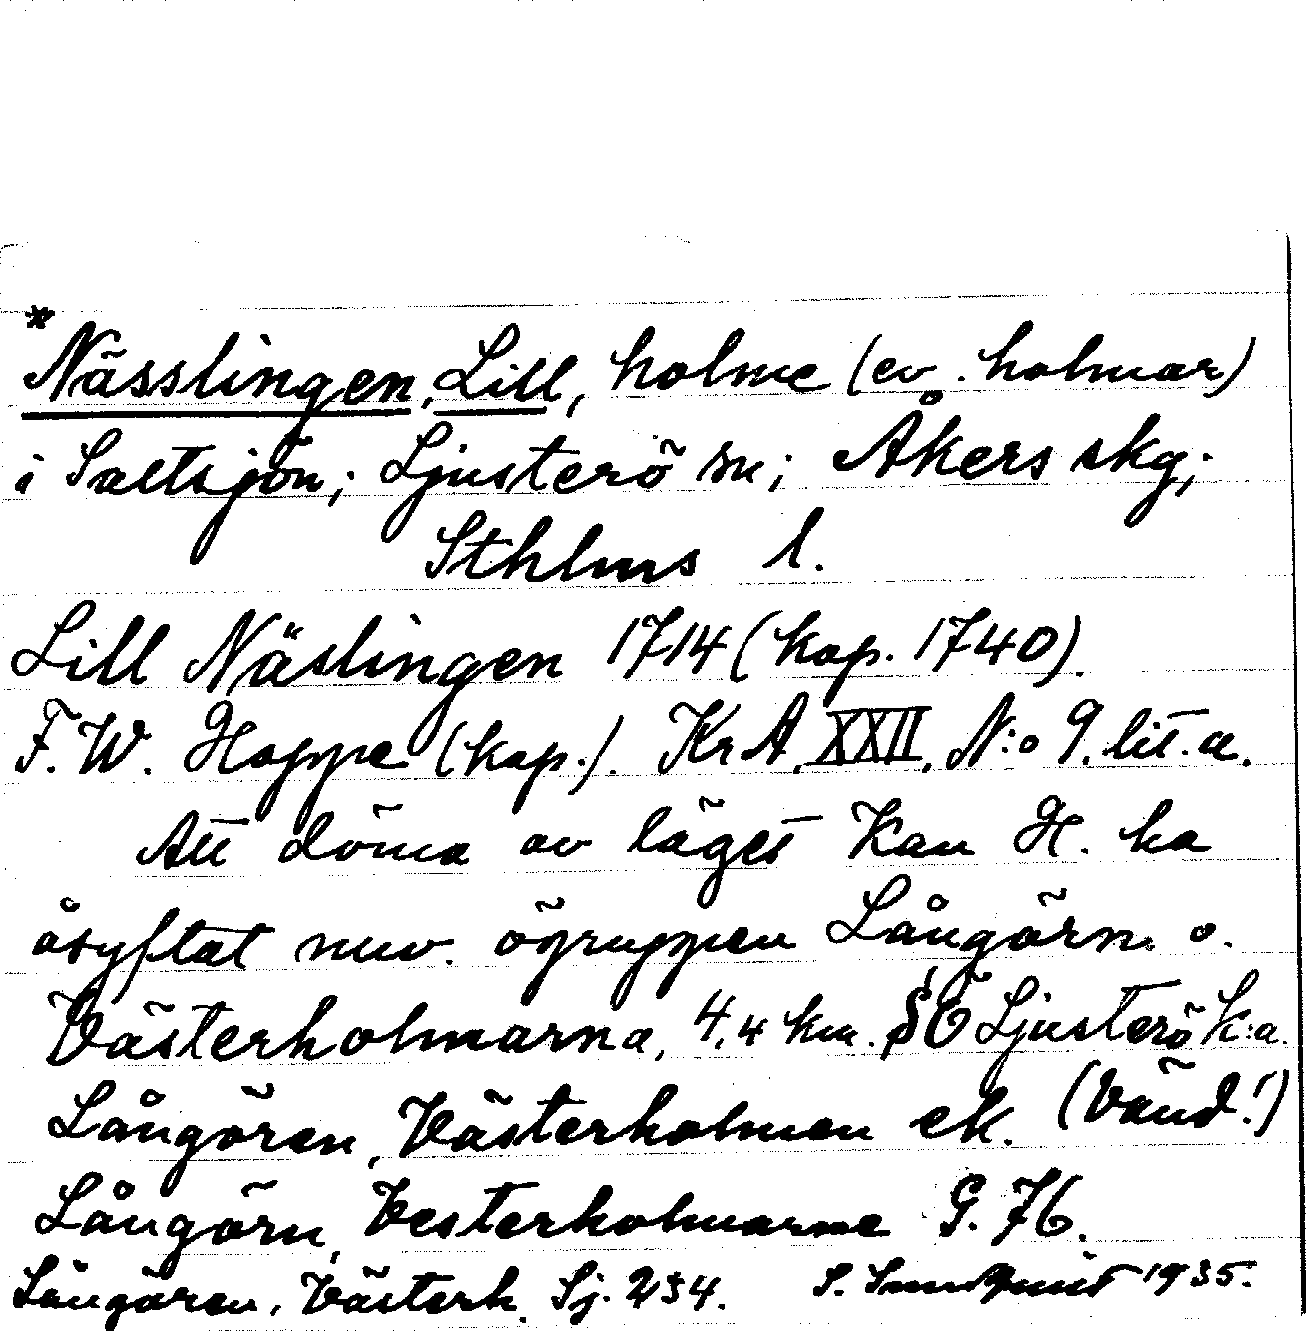 *Nässlingen, Lill, holme (ev. holmar)
i Saltsjön; Ljusterö sn; Åkers skg;
Sthlms l.
Lill Näslingen 1714 (kop. 1740).
F. W. Hoppe (kop.). KrA. XXII, N:o 9. lit. a.
Att döma av läget kan H. ha
åsyftat nuv. ögruppen Långörn o.
Västerholmarna, 4,4 km. SÖ Ljusterö k:a.
Långören, Västerholmen ek. (Vänd!)
Långörn, Vesterholmarne G. 76.
Långören, Västerh. Sj. 234. S. 1935.